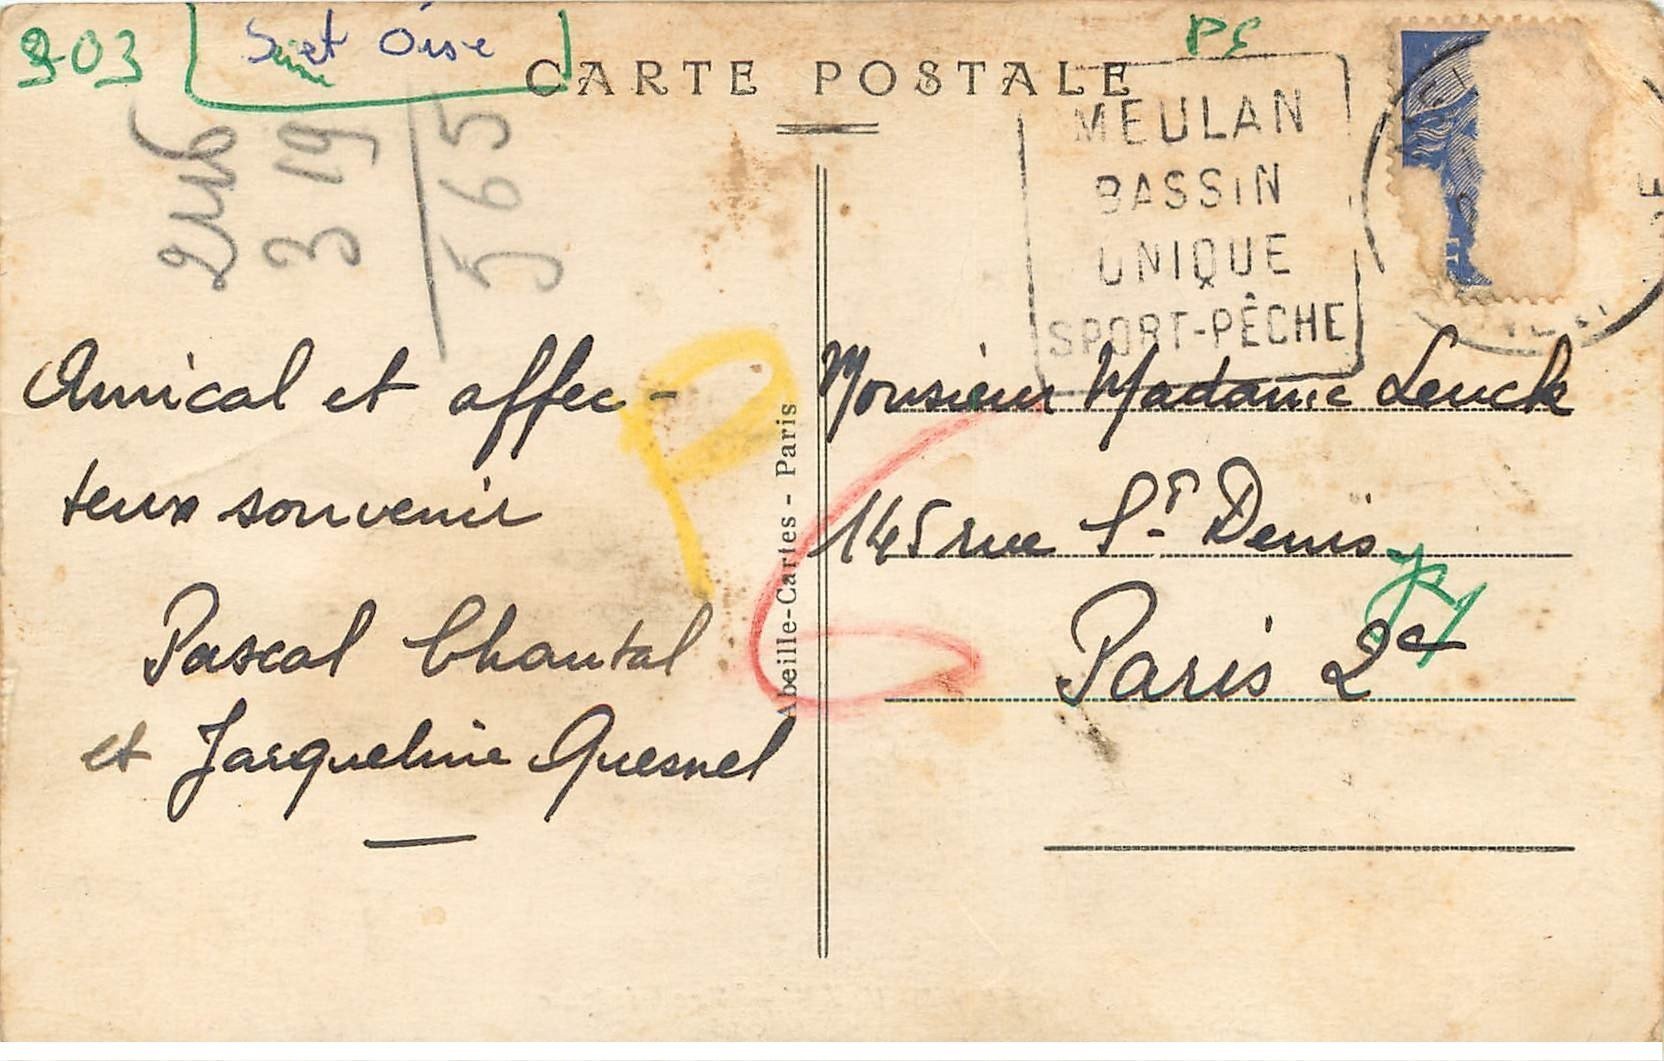 903
S et Oise
Seine
PC
CARTE POSTALE
MEULAN
BASSIN
UNIQUE
SPORT-PÊCHE
319
565
Amical et affec-
teux souvenir
Pascal Chantal
et Jacqueline Quesnel
Abeille-Cartes - Paris
P
Monsieur Madame Leuck
145 rue St Denis
Paris 2e